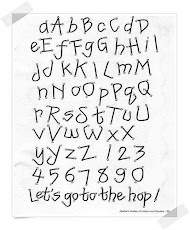 aAbBcCdD
eEfFgGhHiI
jJkKlLmM
nNoOpPqQ
rRsStTuU
vVwWxX
yYzZ123
4567890
Let's go to the hop!